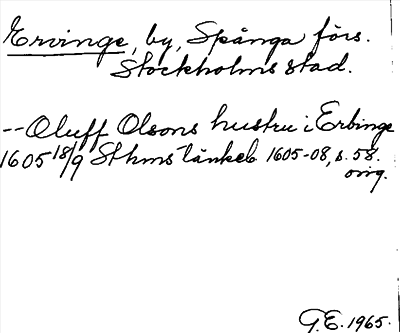 Ervinge, by, Spånga förs.
Stockholms stad.
-- Oluff Olsons hustru i Erbinge
1605 18/9 Sthms tänkeb 1605-08, s. 58.
orig.
G.E. 1965.